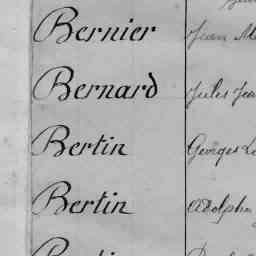 Bernier Jean
Bernard Jules Jea
Bertin Georges L
Bertin Adolphe